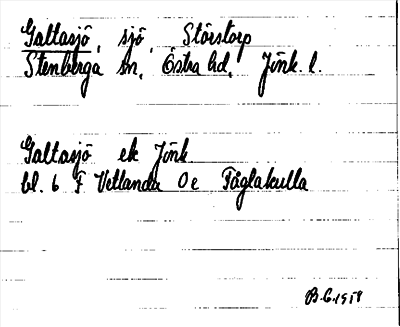 Galtasjö, sjö, Störstorp
Stenberga sn, Östra hd, Jönk. l.
Galtasjö ek Jönk
bl. 6 F Vetlanda Oe Fåglakulla
B.C. 1958